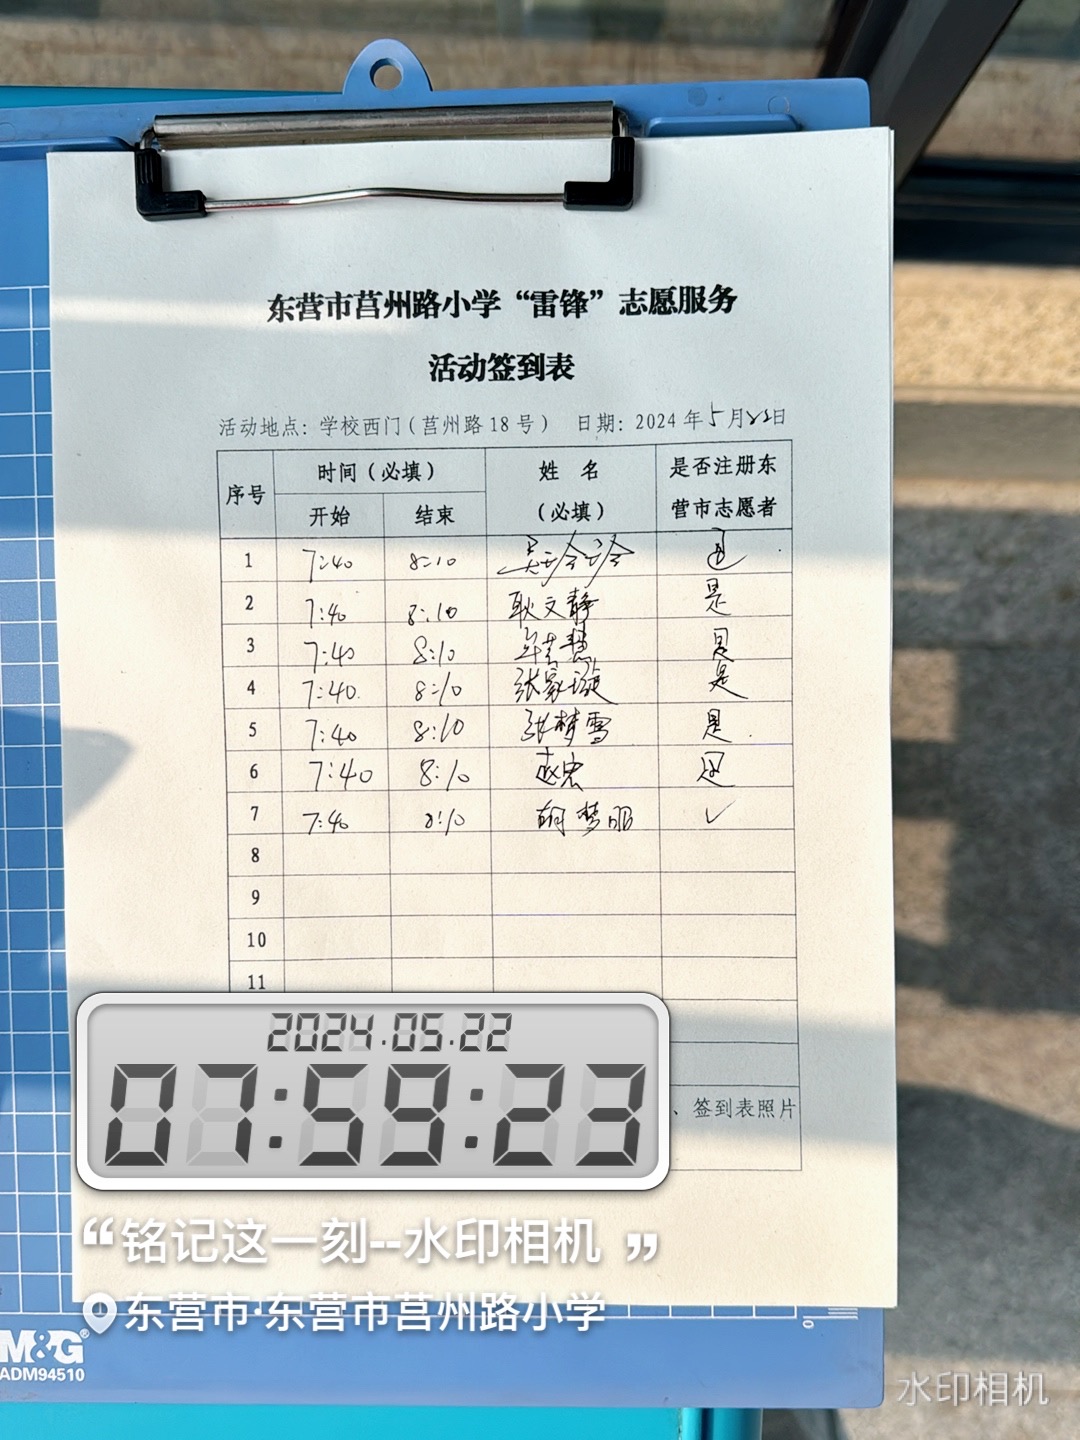 东营市莒州路小学“雷锋”志愿服务
活动签到表
活动地点：学校西门（莒州路18号） 日期：2024年5月22日
序号 时间（必填） 姓 名 是否注册东
开始 结束 （必填） 营市志愿者
1 7:40 8:10 吴玲玲 是
2 7:40 8:10 耿文静 是
3 7:40 8:10 是
4 7:40 8:10 张家璇 是
5 7:40 8:10 张梦雪 是
6 7:40 8:10 赵宏 是
7 7:40 8:10 胡梦 ✓
8
9
10
11
、签到表照片
2024.05.22
07:59:23
“铭记这一刻--水印相机”
东营市·东营市莒州路小学
M&G®
ADM94510
水印相机